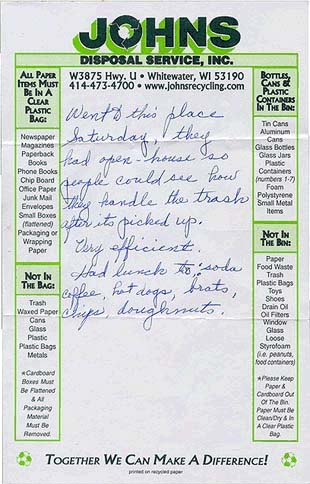 JOHNS
DISPOSAL SERVICE, INC.
W3875 Hwy. U • Whitewater, WI 53190
414-473-4700 • www.johnsrecycling.com
ALL PAPER
ITEMS MUST
BE IN A
CLEAR
PLASTIC
BAG:
Newspaper
Magazines
Paperback
Books
Phone Books
Chip Board
Office Paper
Junk Mail
Envelopes
Small Boxes
(flattened)
Packaging or
Wrapping
Paper
NOT IN
THE BAG:
Trash
Waxed Paper
Cans
Glass
Plastic
Plastic Bags
Metals
*Cardboard
Boxes Must
Be Flattened
& All
Packaging
Material
Must Be
Removed.
Went to this place
Saturday, they
had open-house so
people could see how
they handle the trash
after its picked up.
Very efficient.
Had lunch to: soda
coffee, hot dogs, brats,
chips, doughnuts.
BOTTLES,
CANS &
PLASTIC
CONTAINERS
IN THE BIN:
Tin Cans
Aluminum
Cans
Glass Bottles
Glass Jars
Plastic
Containers
(numbers 1-7)
Foam
Polystyrene
Small Metal
Items
NOT IN
THE BIN:
Paper
Food Waste
Trash
Plastic Bags
Toys
Shoes
Drain Oil
Oil Filters
Window
Glass
Loose
Styrofoam
(i.e. peanuts,
food containers)
*Please Keep
Paper &
Cardboard Out
Of The Bin.
Paper Must Be
Clean/Dry & In
A Clear Plastic
Bag.
TOGETHER WE CAN MAKE A DIFFERENCE!
printed on recycled paper